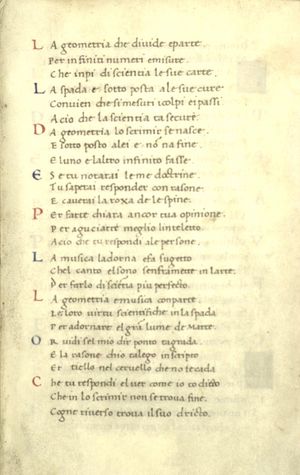 L A geometria che divide eparte.
Per infiniti numeri emisure.
Che inpi di scientia le sue carte.
L A spada e sotto posta ale sue cure
Convien che si mesuri icolpi ei passi
Acio che la scientia ta secure.
D A geometria lo scrimir se nasce.
E sotto posto alei e nō na fine.
E luno e laltro infinito fasse.
E S e tu notarai le me doctrine.
Tu saperai responder con rasone.
E caverai la roxa de le spine.
P er farte chiara ancor tua opinione.
Per aguciarte meglio linteletto.
Acio che tu respondi ale persone.
L A musica ladorna efa sugetto
Chel canto elsono senframette in larte.
Per farlo di sciētia piu perfecto.
L A geometria emusica conparte.
Le loro virtu scientifiche in la spada
Per adornare el grā lume de Marte.
O R vidi sel mio dir ponto tagrada
E la rasone chio talego inscripto
Et tiello nel cervello che no te cada
C he tu respondi el ver come io to dicto
Che in lo scrimir non se trova fine.
Cogne riverso trova il suo dricto.